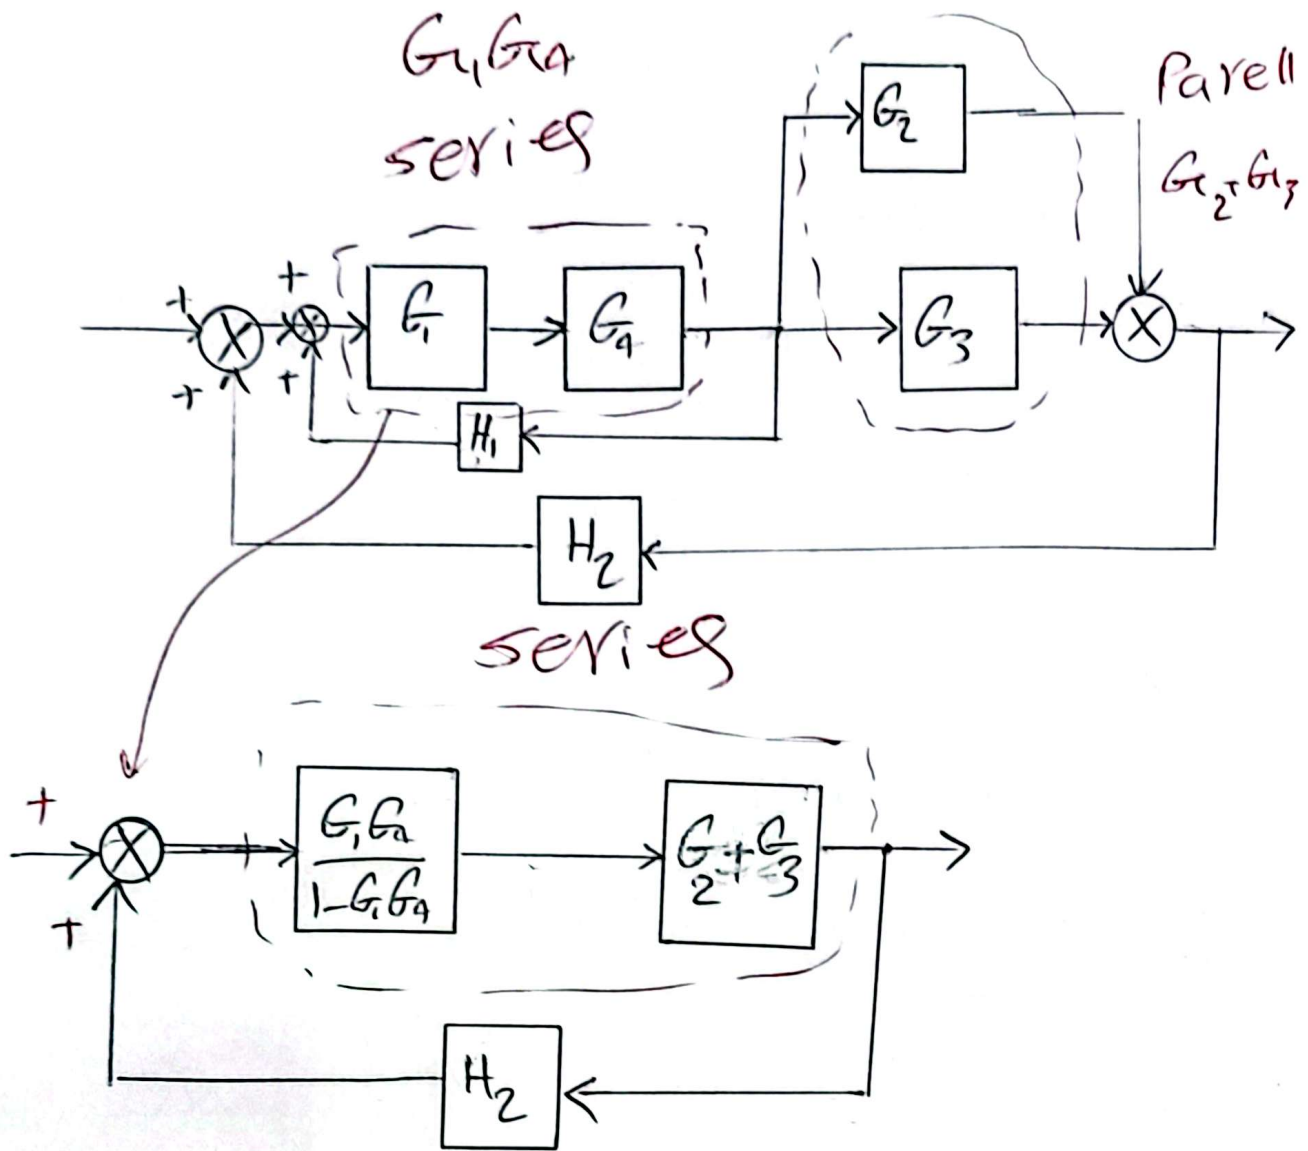 G1G4
series
G2
Parell
G2+G3
+
+
G1
G4
G3
+
+
H1
H2
series
+
G1G4
1-G1G4
G2+G3
+
H2